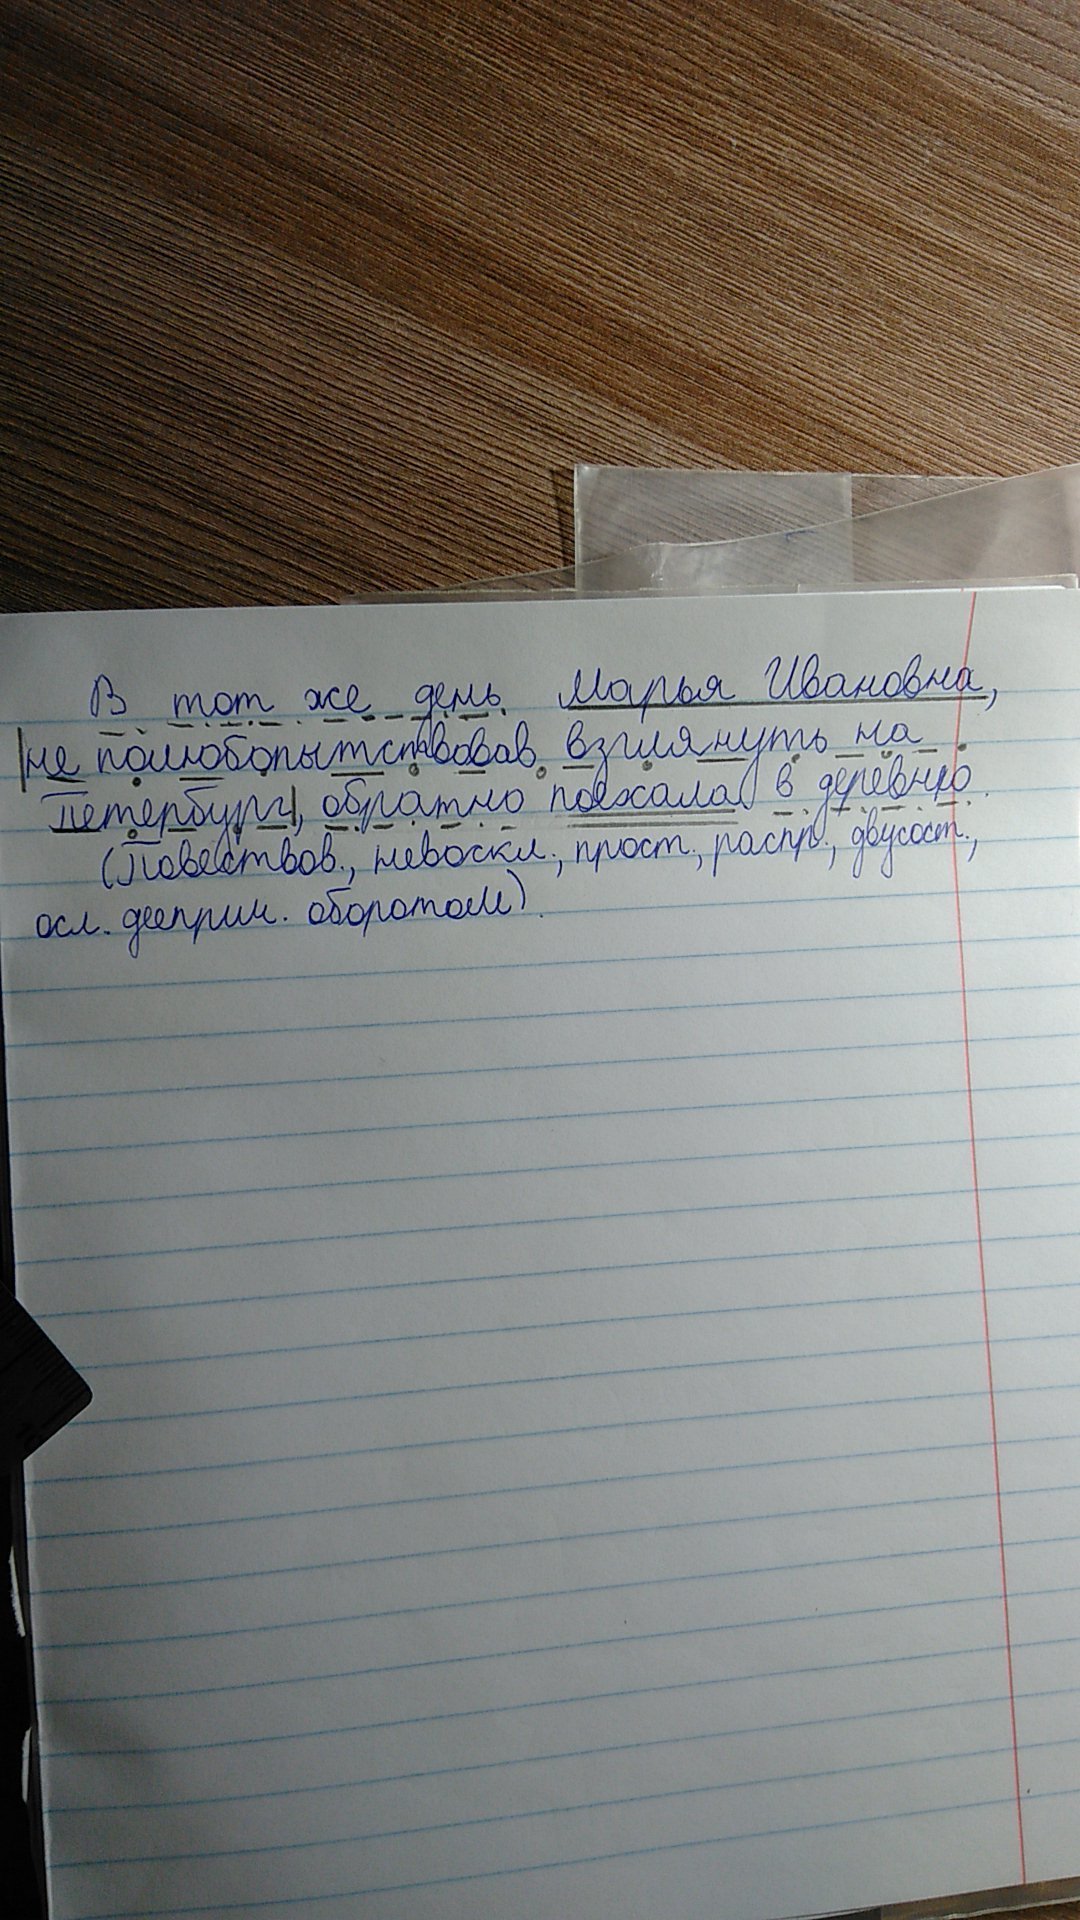 В тот же день Марья Ивановна,
не полюбопытствовав взглянуть на
Петербург, обратно поехала в деревню.
(Повествов., невоскл., прост., распр., двусост.,
осл. дееприч. оборотом).